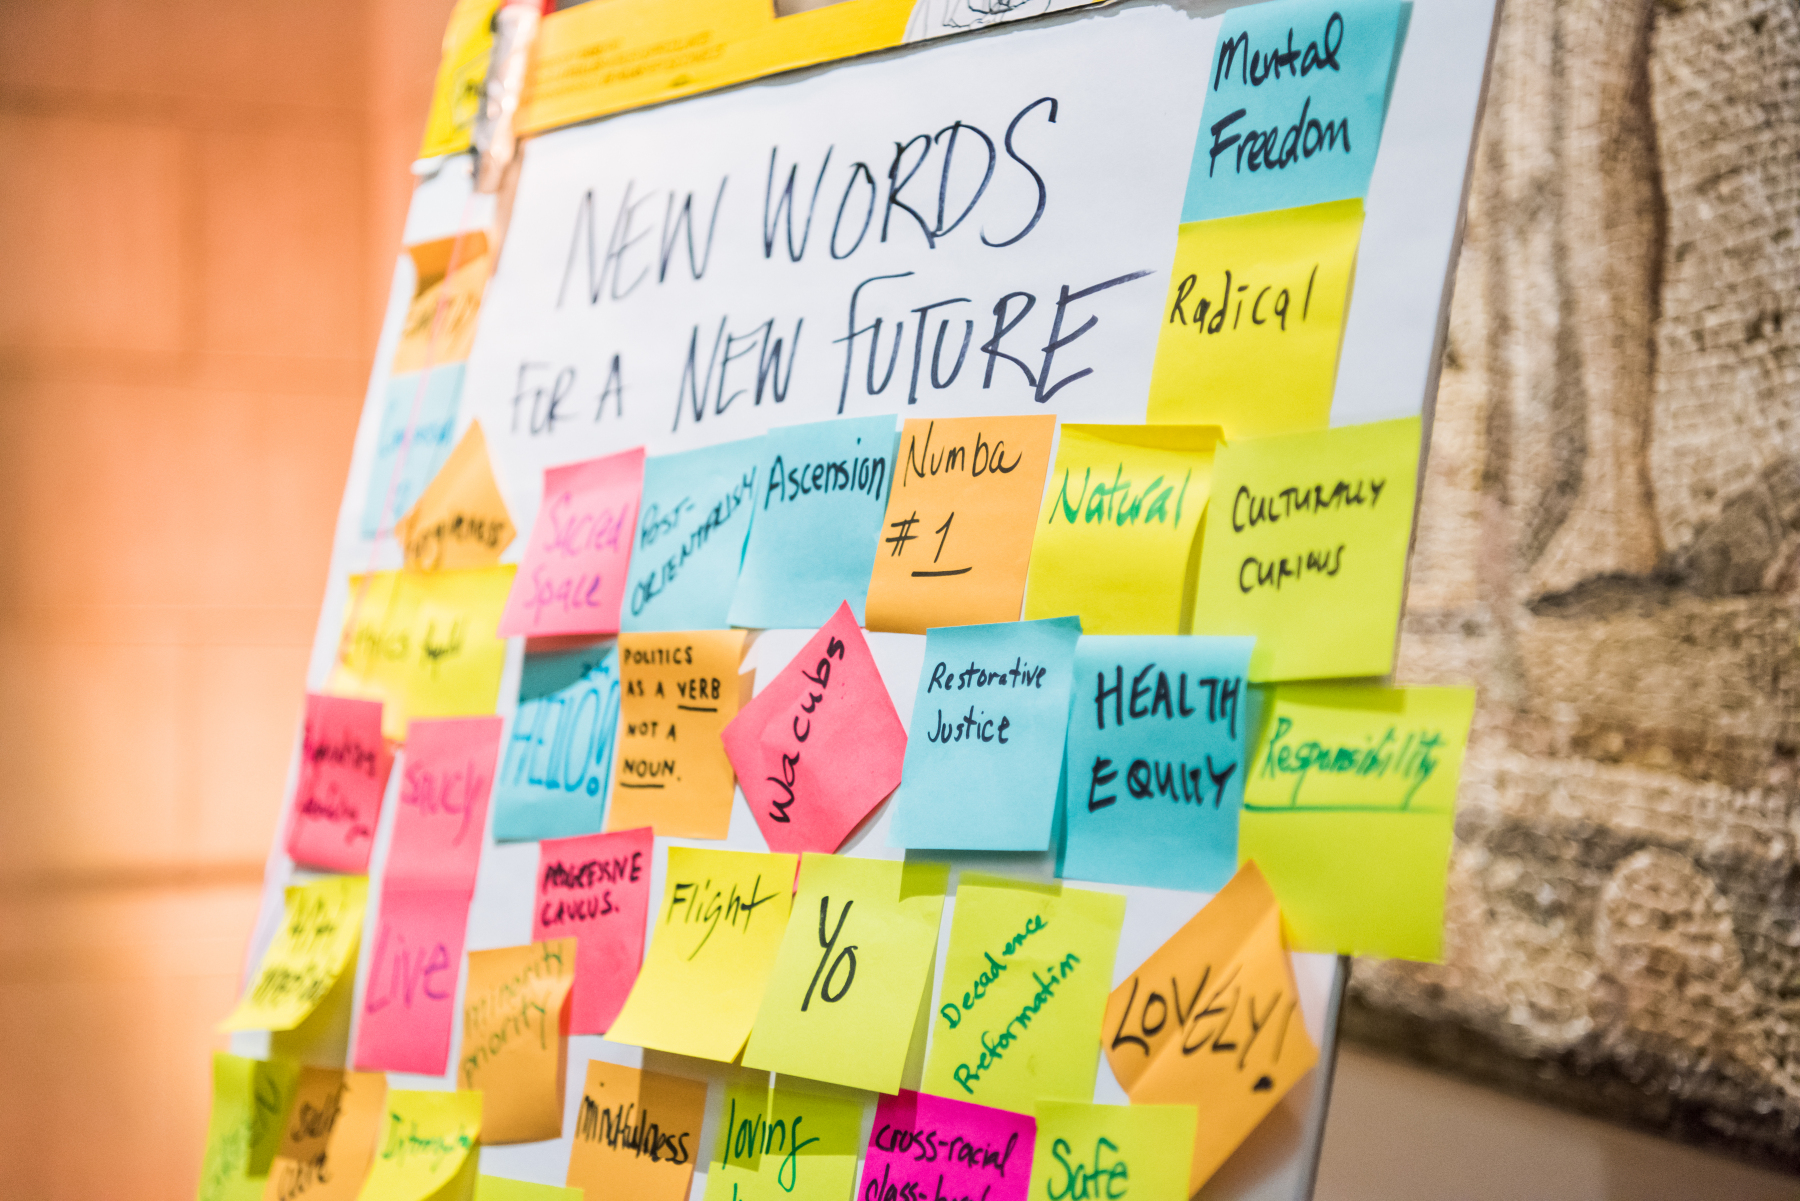 NEW WORDS
FOR A NEW FUTURE
Mental
Freedom
Radical
Forgiveness
Sacred
Space
POST-
ORIENTALISM
Ascension
Numba
# 1
Natural
CULTURALLY
CURIOUS
HELLO!
POLITICS
AS A VERB
NOT A
NOUN.
Wacubs
Restorative
Justice
HEALTH
EQUITY
Responsibility
Live
PROGRESSIVE
CAUCUS.
Flight
Yo
Decadence
Preformation
LOVELY!
minority
priority
self
care
mindfulness
loving
cross-racial
Safe